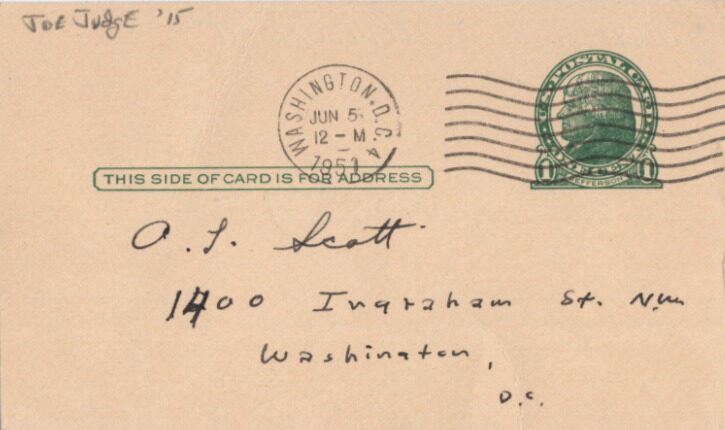 JOE JUDGE '15
WASHINGTON, D.C.
JUN 5
12 - M
1951
4
U.S. POSTAL CARD
1 ONE CENT 1
JEFFERSON
THIS SIDE OF CARD IS FOR ADDRESS
O. L. Scott
1400 Ingraham St. N.W.
Washington,
D.C.